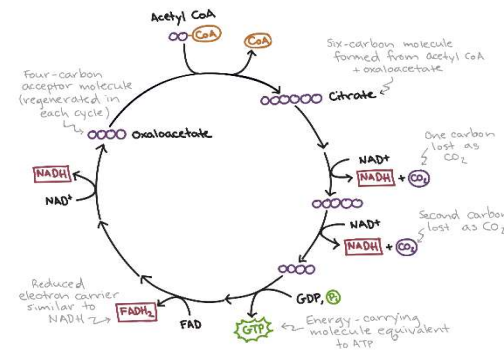 Acetyl CoA
CoA
CoA
Six-carbon molecule
formed from acetyl CoA
+ oxaloacetate
Citrate
Four-carbon
acceptor molecule
(regenerated in
each cycle)
Oxaloacetate
One carbon
lost as
CO₂
NAD+
NADH + CO₂
Second carbon
lost as CO₂
NAD+
NADH + CO₂
NADH
NAD+
GDP, Pi
GTP
Energy-carrying
molecule equivalent
to ATP
FAD
FADH₂
Reduced
electron carrier
similar to
NADH